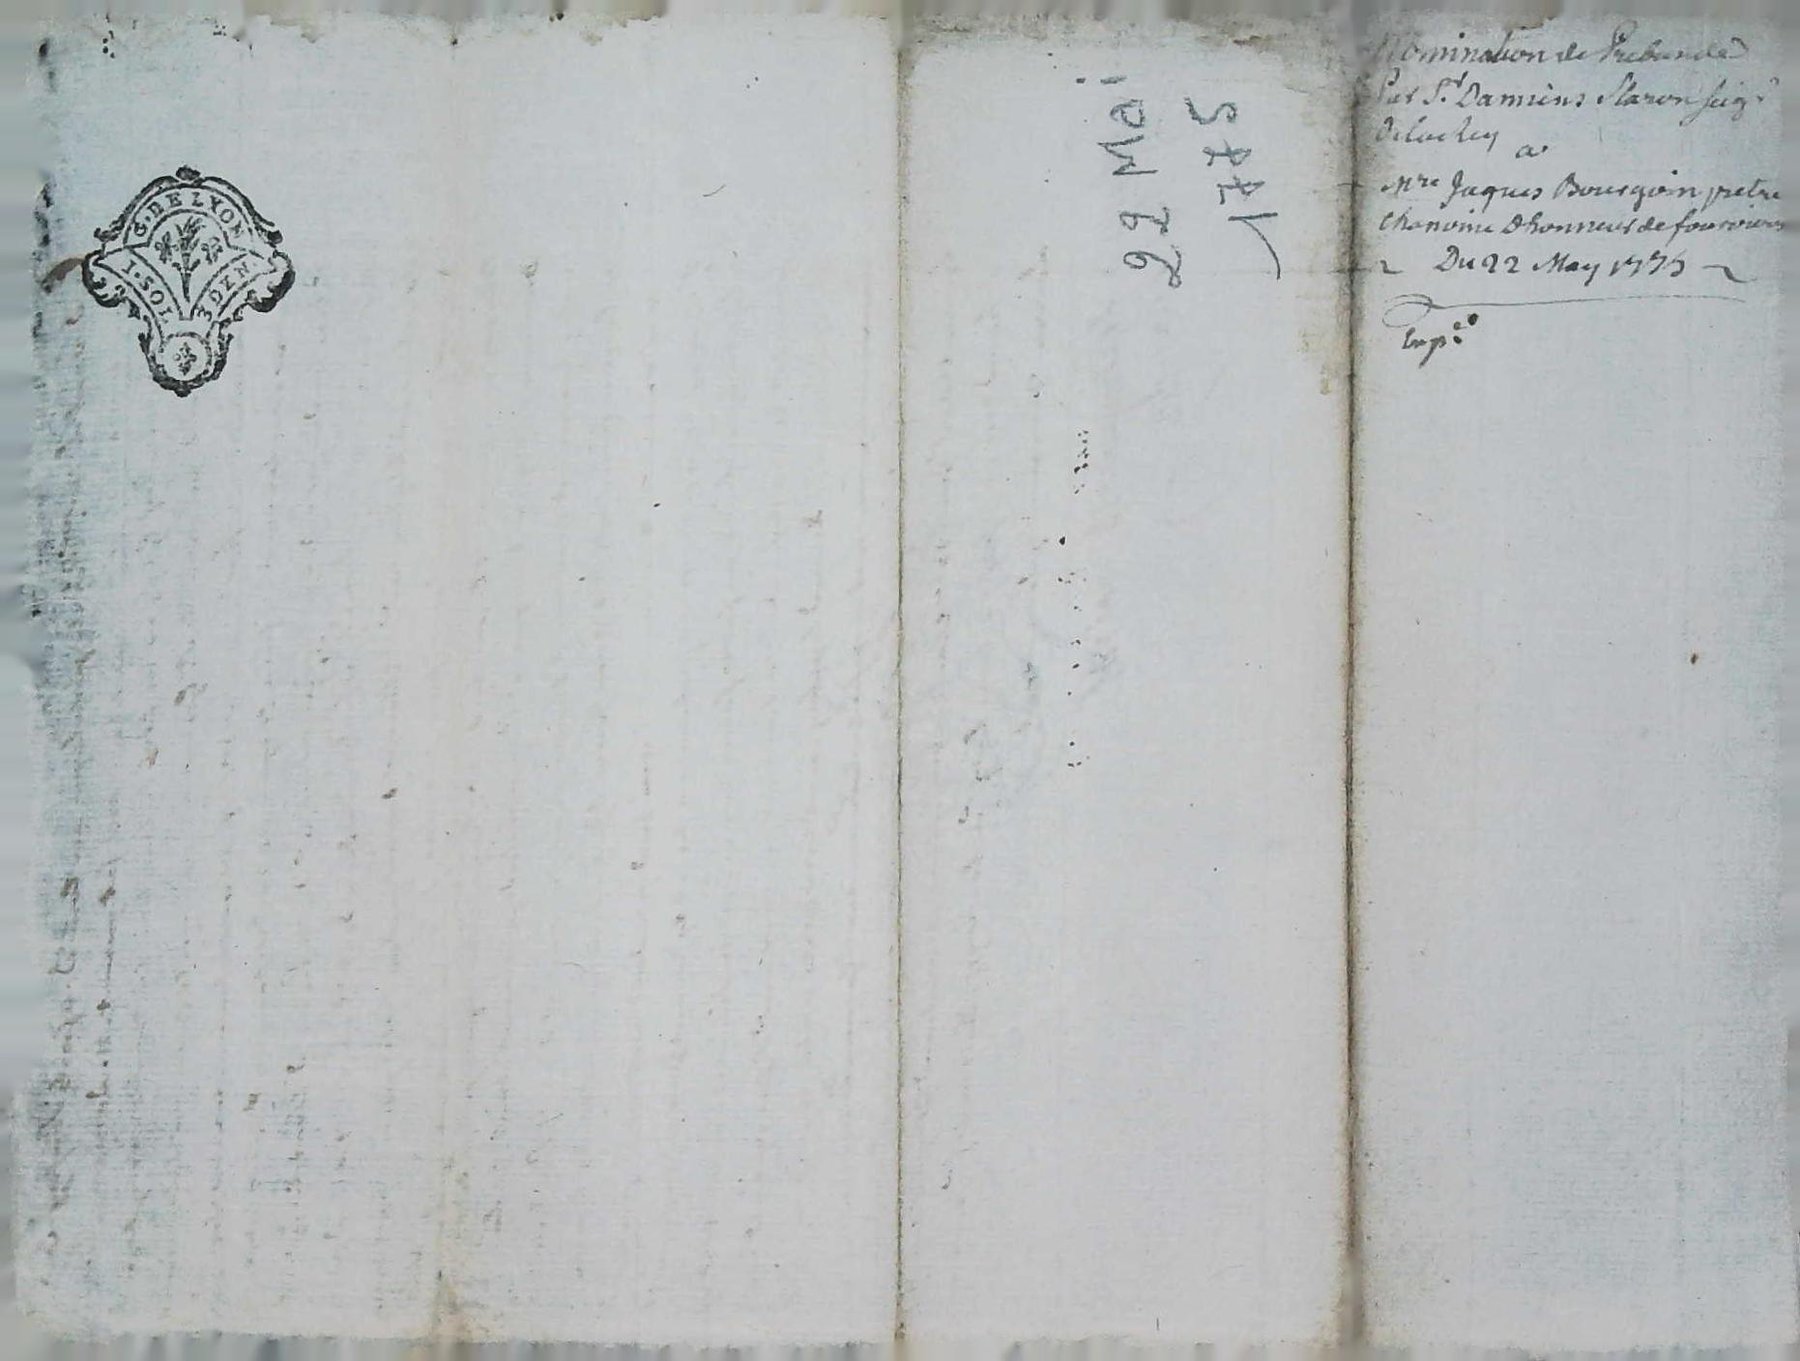 G. DE LYON
1. SOL 3 DEN.
22 Mai
1775
Nomination de Prebende
Par Sr. Damiens Seigr
a
Mre Jaques Bourgoin pretre
Chanoine Dhonneur de fourviere
Du 22 May 1775
Exp.ee